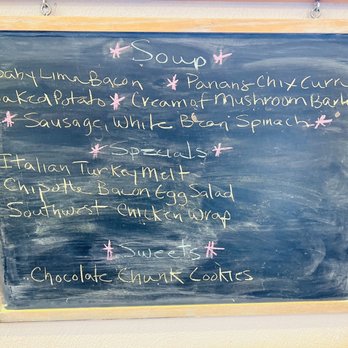 * Soup *
baby Lima Bacon * Panang Chix Curr
aked Potato * Cream of Mushroom Barl
* Sausage, White Bean Spinach *
* Specials *
Italian Turkey Melt
Chipotle Bacon Egg Salad
Southwest Chicken Wrap
* Sweets *
Chocolate Chunk Cookies